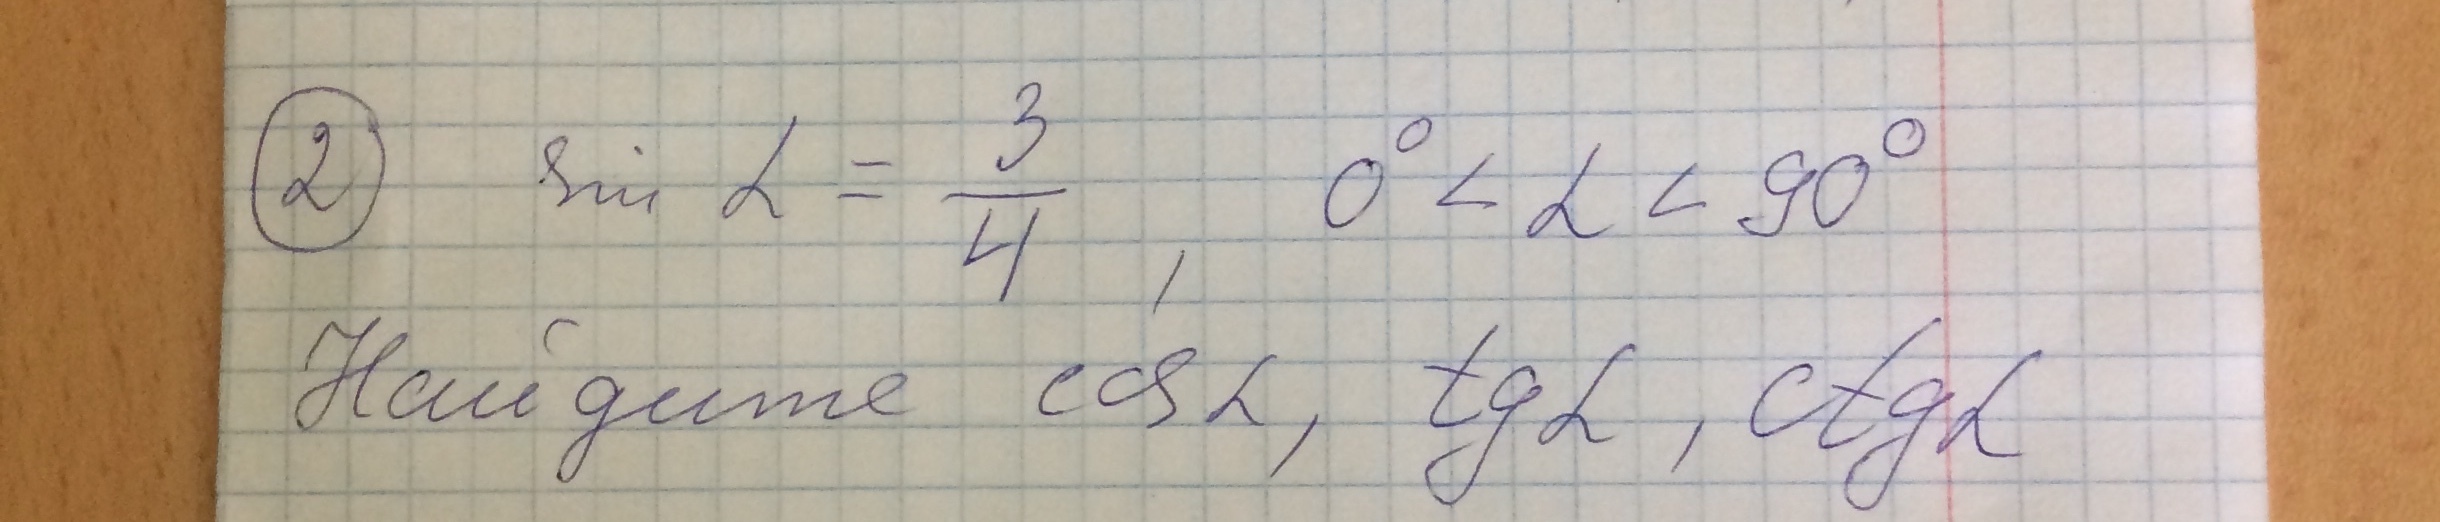 ② sin α = 3/4, 0° < α < 90°
Найдите cos α, tg α, ctg α